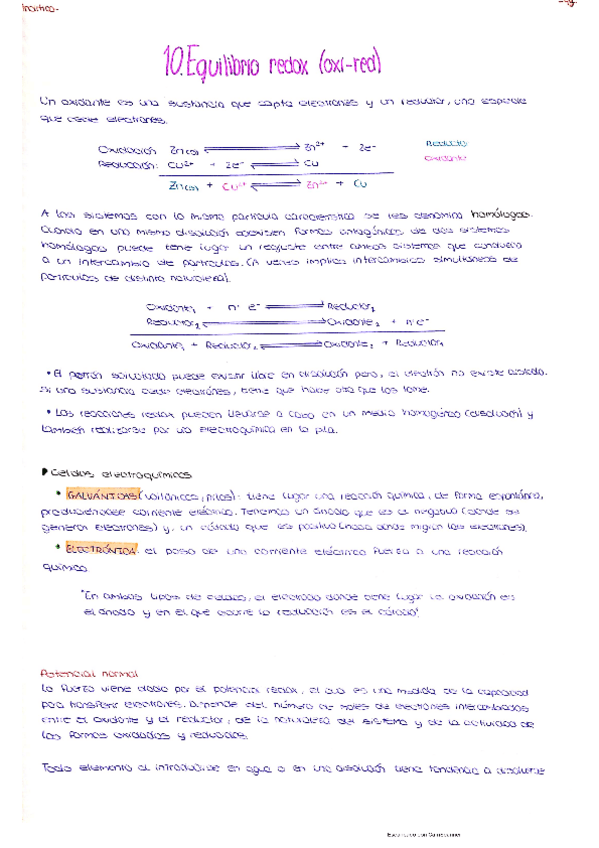 10. Equilibrio redox (oxi-red)
Un oxidante es una sustancia que capta electrones y un reductor, una especie
que cede electrones.
Oxidación Zn(s) ⇌ Zn²⁺ + 2e⁻ Reductor
Reducción: Cu²⁺ + 2e⁻ ⇌ Cu Oxidante
Zn(s) + Cu²⁺ ⇌ Zn²⁺ + Cu
A los sistemas con la misma partícula característica se les denomina homólogos.
Cuando en una misma disolución coexisten formas antagónicas de dos sistemas
homólogos puede tener lugar un reajuste entre ambos sistemas que conduciría
a un intercambio de partículas. (A veces implica intercambios simultáneos de
partículas de distinta naturaleza).
Oxidante₁ + n e⁻ ⇌ Reductor₁
Reductor₂ ⇌ Oxidante₂ + n e⁻
Oxidante₁ + Reductor₂ ⇌ Oxidante₂ + Reductor₁
• El protón solvatado puede existir libre en disolución pero, el electrón no existe aislado.
Si una sustancia cede electrones, tiene que haber otra que los tome.
• Las reacciones redox pueden llevarse a cabo en un medio homogéneo (disolución) y
también realizarse por vía electroquímica en la pila.
Celdas electroquímicas
• GALVÁNICAS (voltaicas, pilas): tiene lugar una reacción química, de forma espontánea,
produciéndose corriente eléctrica. Tenemos un ánodo que es el negativo (donde se
generan electrones) y, un cátodo que es positivo (hacia donde migran los electrones).
• el paso de una corriente eléctrica fuerza a una reacción
química.
"En ambos tipos de celdas, el electrodo donde tiene lugar la oxidación es
el ánodo y en el que ocurre la reducción es el cátodo".
Potencial normal
La fuerza viene dada por el potencial redox, el cual es una medida de la capacidad
para transferir electrones. Depende del número de moles de electrones intercambiados
entre el oxidante y el reductor, de la naturaleza del sistema y de la actividad de
las formas oxidadas y reducidas.
Todo elemento al introducirse en agua o en una disolución tiene tendencia a disolverse
Escaneado con CamScanner